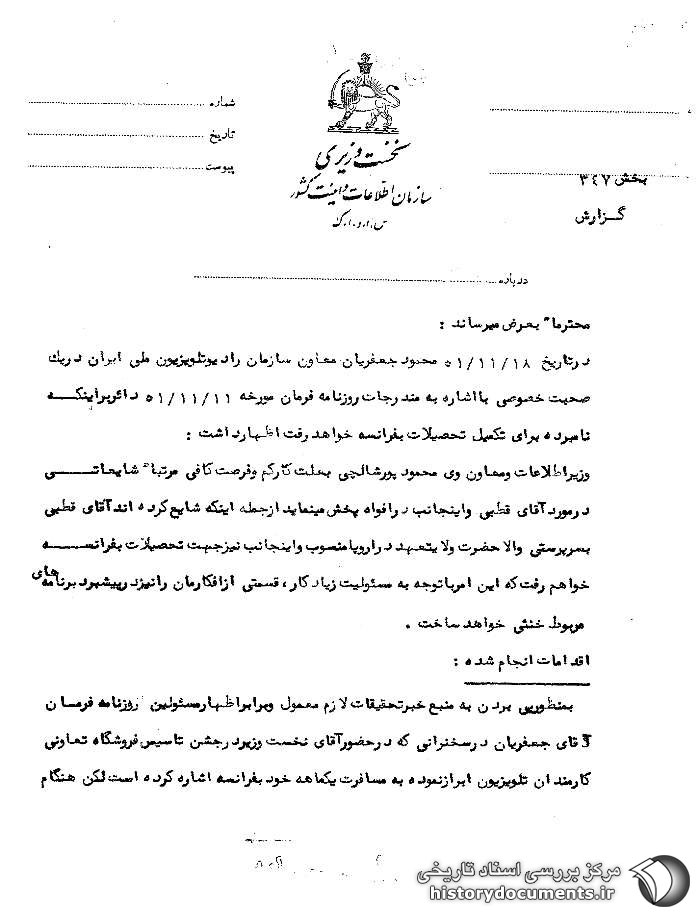 شماره
تاریخ
پیوست
نخست وزیری
سازمان اطلاعات و امنیت کشور
س.ا.و.ا.ک
بخش ۳۴۷
گزارش
درباره
محترما" بعرض میرساند :
در تاریخ ۵۱/۱۱/۱۸ محمود جعفریان معاون سازمان رادیو تلویزیون ملی ایران در یک
صحبت خصوصی با اشاره به مندرجات روزنامه فرمان مورخه ۵۱/۱۱/۱۱ دائر بر اینکه
نامبرده برای تکمیل تحصیلات بفرانسه خواهد رفت اظهار داشت :
وزیر اطلاعات و معاون وی محمود پورشالچی بعلت کار کم و فرصت کافی مرتبا" شایعاتی
در مورد آقای قطبی و اینجانب در افواه پخش مینماید از جمله اینکه شایع کرده اند آقای قطبی
بسرپرستی والاحضرت ولایتعهد در اروپا منصوب و اینجانب نیز جهت تحصیلات بفرانسه
خواهم رفت که این امر با توجه به مسئولیت زیاد کار ، قسمتی از افکارمان را نیز در پیشبرد برنامه های
مربوط خنثی خواهد ساخت .
اقدامات انجام شده :
بمنظور پی بردن به منبع خبر تحقیقات لازم معمول و برابر اظهار مسئولین روزنامه فرمان
آقای جعفریان در سخنرانی که در حضور آقای نخست وزیر در جشن تاسیس فروشگاه تعاونی
کارمندان تلویزیون ابراز نموده به مسافرت یکماهه خود بفرانسه اشاره کرده است لکن هنگام
مرکز بررسی اسناد تاریخی
historydocuments.ir